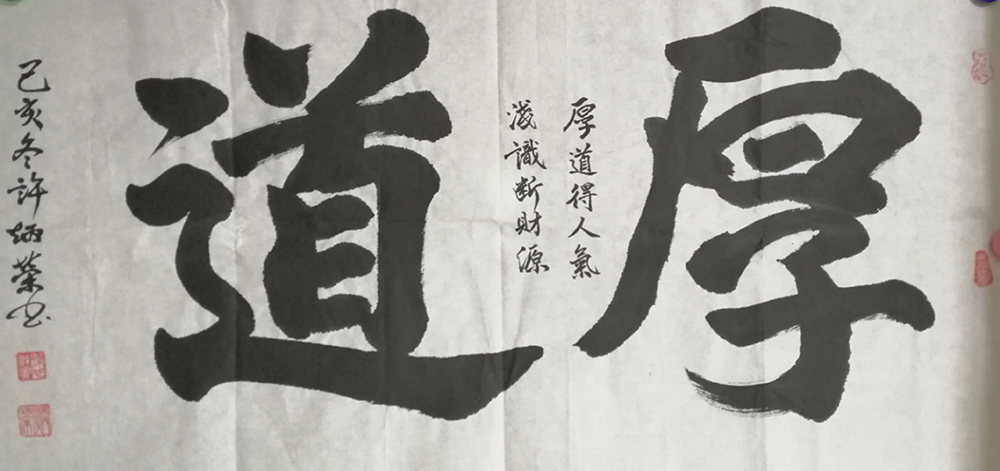 厚道
厚道得人氣
淺識断財源
己亥冬許炳榮书